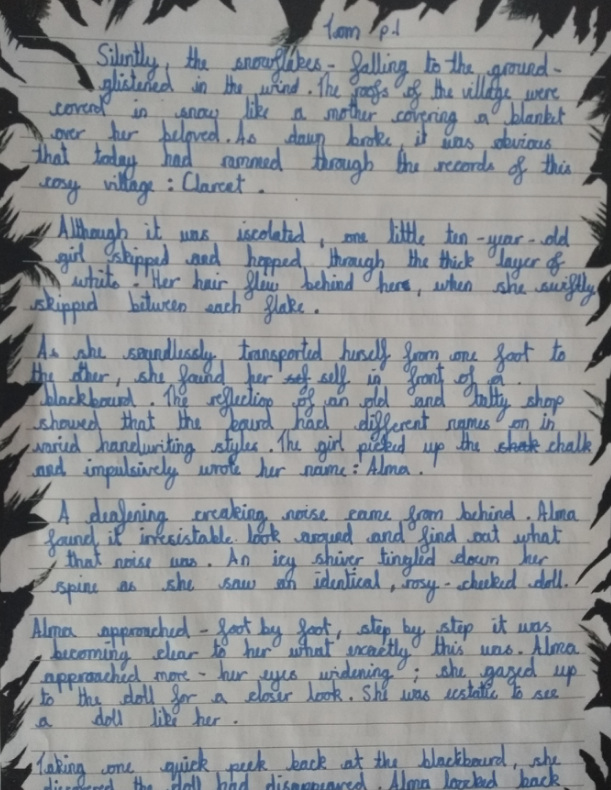 1.am p.1
Silently, the snowflakes - falling to the ground -
glistened in the wind. The roofs of the village were
covered in snow like a mother covering a blanket
over her beloved. As dawn broke, it was obvious
that today had rammed through the records of this
cosy village : Clarcet.
Although it was iscolated, one little ten-year-old
girl skipped and hopped through the thick layer of
white. Her hair flew behind here, when she swiftly
skipped between each flake.
As she soundlessly transported herself from one foot to
the other, she found her self in front of a
blackbourd. The reflection of an old and tatty shop
showed that the bourd had different names on in
varied handwriting styles. The girl picked up the chalk
and impulsively wrote her name : Alma.
A deafening creaking noise came from behind. Alma
found it irresistable look around and find out what
that noise was. An icy shiver tingled down her
spine as she saw an identical, rosy-cheeked doll.
Alma approached - foot by foot, step by step it was
becoming clear to her what exactly this was. Alma
approached more - her eyes widening ; she gazed up
to the doll for a closer look. She was ecstatic to see
a doll like her.
Taking one quick peek back at the blackbourd, she
discovered the doll had disappeared. Alma looked back